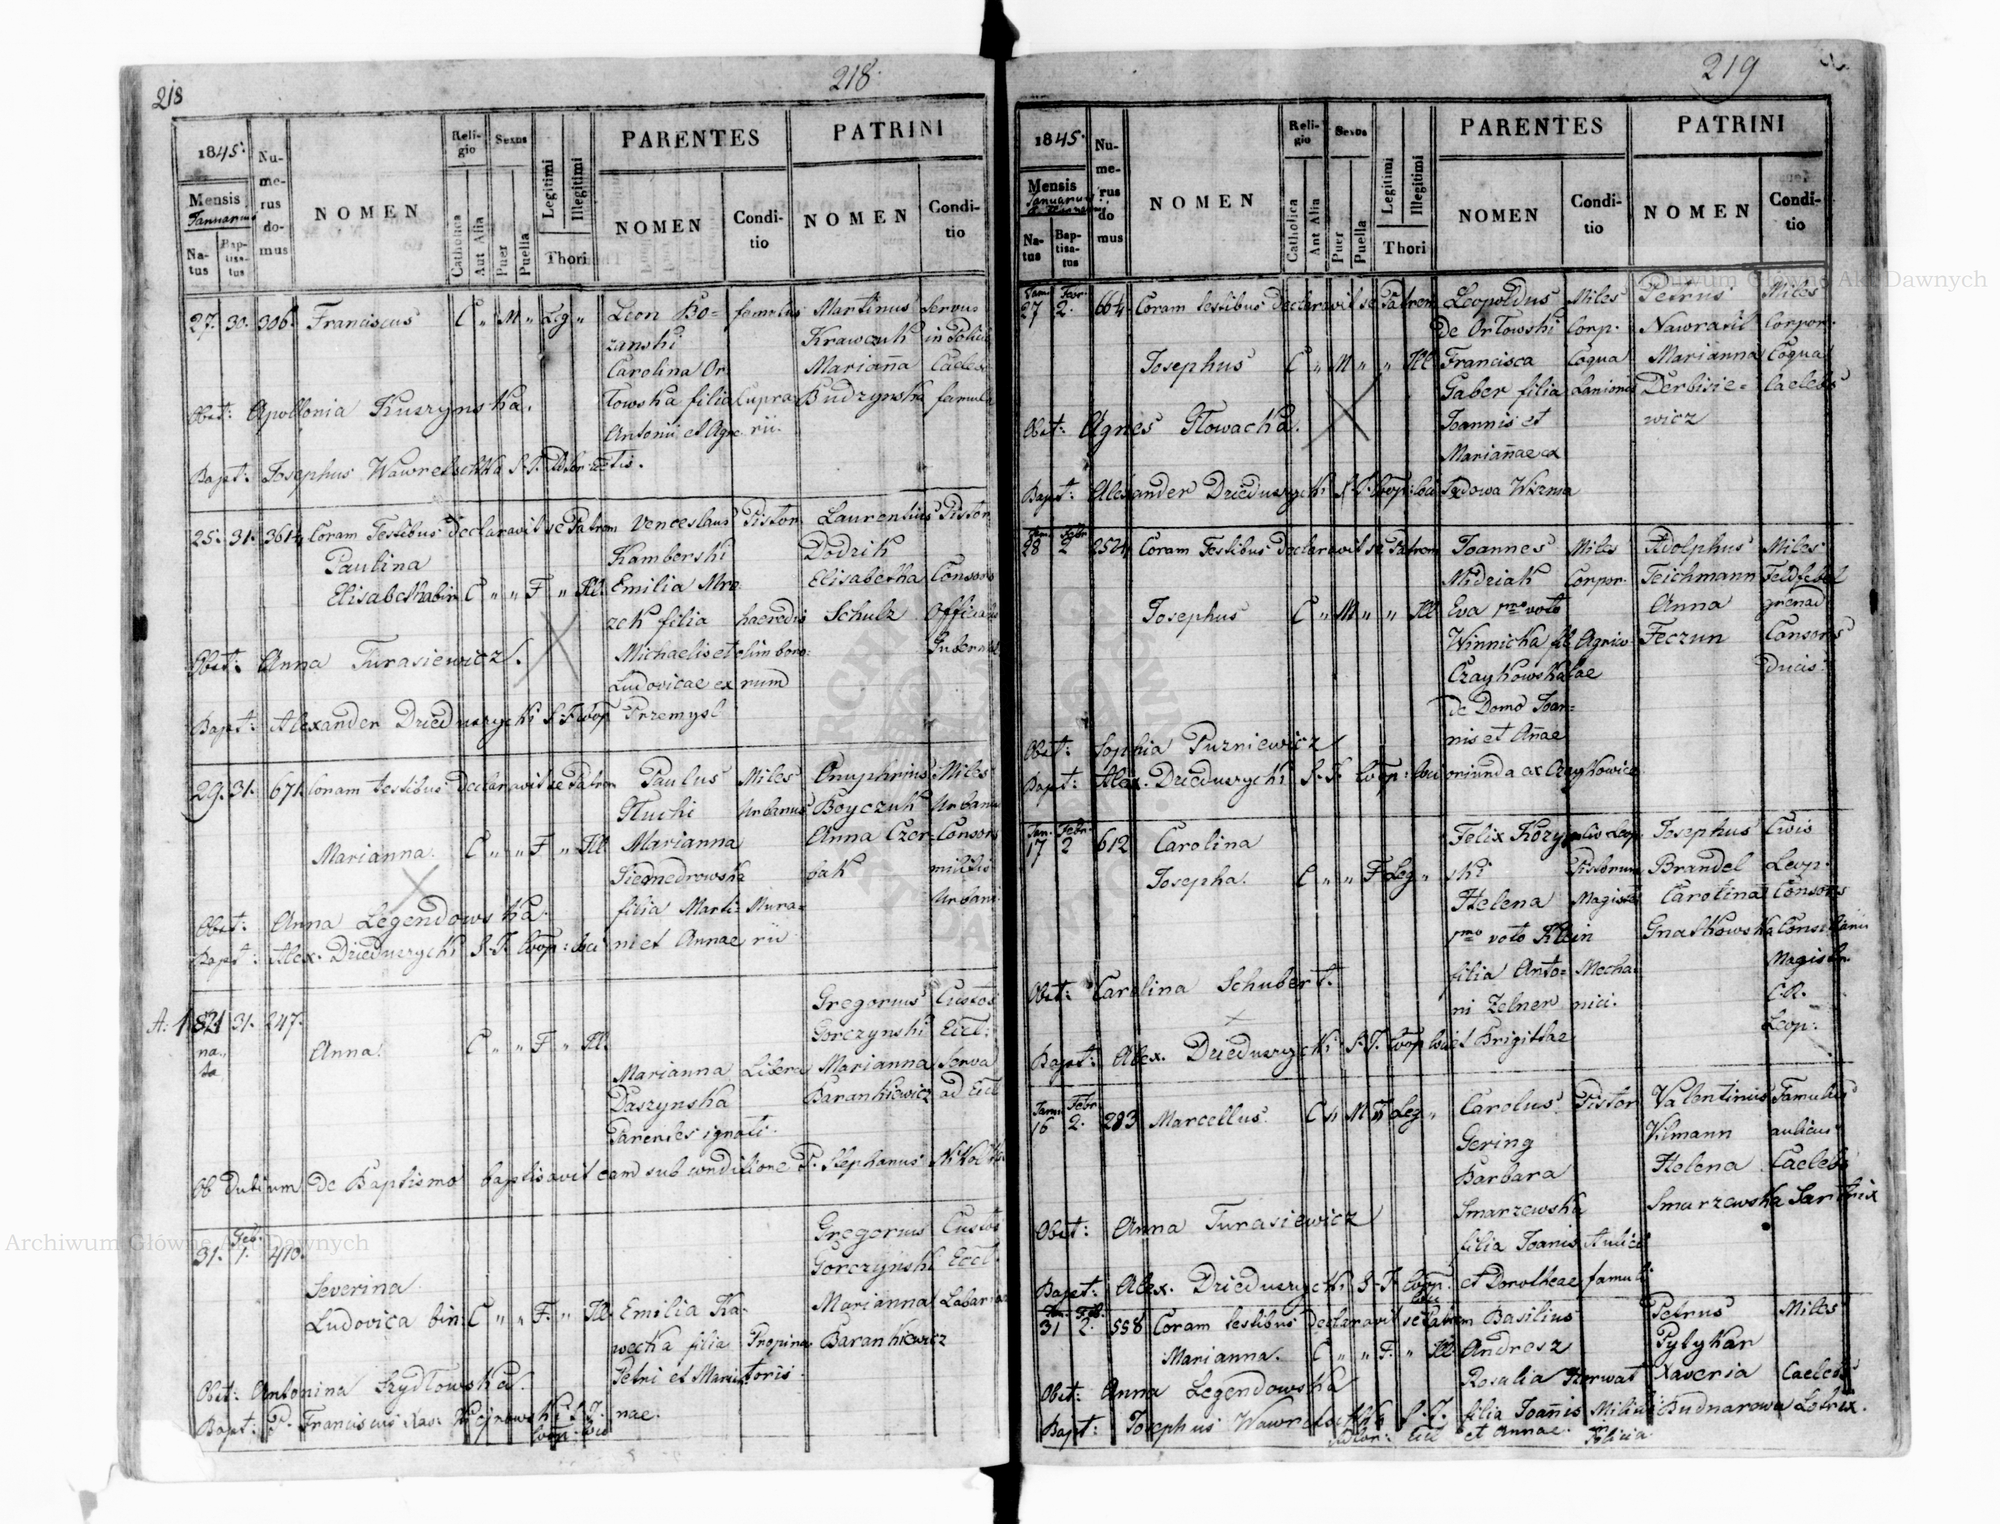 218
218.
1845.
Mensis
Januarius
Natus
Baptisatus
Numerus domus
NOMEN
Religio
Catholica
Aut Alia
Sexus
Puer
Puella
Legitimi
Illegitimi
Thori
PARENTES
NOMEN
Conditio
PATRINI
NOMEN
Conditio
27. 30. 306. Franciscus C " M " Leg " Leon Bo= famulus Martinus servus
zanski Krawczuk in Policia
Carolina Or Marianna Caelebs
łowska filia Lupra= Budzynska famula
Antonii et Agne rii.
Obst: Apollonia Kuszynska.
Bapt: Josephus Wawreleschka
25. 31. 361 4/4 Coram Testibus declaravit se Patrem Venceslaus Pistor Laurentius Pistor
Paulina Kamberski Dodzik
Elisabetha bin. C " " F " Ill. Emilia Mro Elisabetha Consors
zek filia haeredis Schulz Officialis
Michaelis et olim bono=
Obst: Anna Turasiewicz.
Ludovicae ex rum
Bapt: Alexander Dzieduszycki S. T. Coop Przemysl
29. 31. 671. Coram testibus declaravit se Patrem Paulus Miles Onuphrius Miles
Głuchi Urbanus Boyczuk Urbanus
Marianna. C " " F " Ill Marianna Anna Czer= Consors
Niedmedrowska bak militis
filia Marti= Mura= Urbani
Obst: Anna Legendowska.
Bapt: Alex. Dzieduszycki S. T. Coop: loci ni et Annae rii
A: 1821 31. 247. Gregorius Custos
nata Gorczynski Eccl:
Anna. C " " F " Ill. Marianna Libera Marianna Serva
Daszynska Barankiewicz ad Eccl
Parentes ignoti.
Ob dubium de Baptismo baptisavit eam sub conditione P. Stephanus
31. Feb. 1. 410. Gregorius Custos
Severina Gorczynski Eccl.
Ludovica bin. C " " F. " Ill. Emilia Ka= Marianna
wecka filia Propina= Barankiewicz
Petri et Marian= toris.
Obst: Antonina Szydłowska.
Bapt: P. Franciscus Xav: Kiejnowski S. T. nae.
Coop. loci
219
1845.
Mensis
Januarius
Natus
Baptisatus
Numerus domus
NOMEN
Religio
Catholica
Aut Alia
Sexus
Puer
Puella
Legitimi
Illegitimi
Thori
PARENTES
NOMEN
Conditio
PATRINI
NOMEN
Conditio
Jan. 27 Febr. 2. 664 Coram testibus declaravit se Patrem Leopoldus Miles Petrus Miles
de Orłowski Corp. Nawratil Corpor.
Josephus C " M " " Ill Francisca Coqua Marianna Coqua
Gaber filia Lanionis Derbisie= Caelebs
Obst: Agnes Głowacka. Joannis et wicz
Mariannae ex
Bapt: Alexander Dzieduszycki S. T. Coop: loci Sądowa Wisznia
Jan. 28 Febr. 2 252 4/4 Coram Testibus declaravit se Patrem Joannes Miles Adolphus Miles
Midziak Corpor. Teichmann Feldfebel
Josephus C " M " " Ill Eva 1mo voto Anna grenad
Winnicka fil. Agrico Feczun Consors
Czaykowska lae Ducis.
de Domo Joan=
nis et Annae
Obst: Sophia Puzniewicz
Bapt: Alex. Dzieduszycki S. T. Coop: loci oriunda ex Czaykowice
Jan. 17 Febr. 2 612 Carolina Felix Kozyn= civis Leop. Josephus Civis
Josepha. C " " F Leg " ski Pistorum Brandel Leop.
Helena Magister Carolina Consors
1mo voto Klein Gnatkowska Consiliarii
filia Anto= Mecha= Magistr.
Obst: Carolina Schubert. ni Zelner nici. C.R.
Leop.
Bapt: Alex. Dzieduszycki S. T. Coop loci et Brigittae
Jan. 16 Febr. 2. 283 Marcellus. C " M " Leg " Carolus Pistor Valentinus Famulus
Gering Vilmann aulicus
Barbara Helena Caelebs
Obst: Anna Turasiewicz Smarzewska Smarzewska Sartrix
filia Joanis Aulici
Bapt: Alex. Dzieduszycki S. T. Coop. loci et Dorotheae famuli
Jan. 31 Feb. 2. 558 Coram testibus declaravit se Patrem Basilius Petrus Miles
Marianna. C " " F. " Ill Andresz Pylykar
Rosalia Horwat Xaveria Caelebs
Obst: Anna Legendowska
Bapt: Josephus Wawreleschka S. T. filia Joannis Militis Budnarowa Lotrix.
et Annae. in Policia
Archiwum Główne Akt Dawnych
Archiwum Główne Akt Dawnych